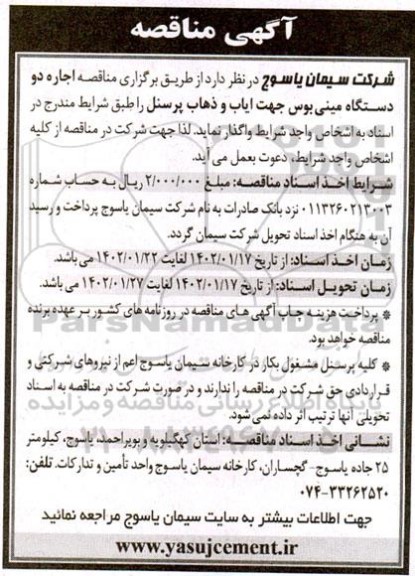 آگهی مناقصه
شرکت سیمان یاسوج در نظر دارد از طریق برگزاری مناقصه اجاره دو
دستگاه مینی بوس جهت ایاب و ذهاب پرسنل را طبق شرایط مندرج در
اسناد به اشخاص واجد شرایط واگذار نماید. لذا جهت شرکت در مناقصه از کلیه
اشخاص واجد شرایط، دعوت بعمل می آید.
شرایط اخذ اسناد مناقصه: مبلغ ۲/۰۰۰/۰۰۰ ریال به حساب شماره
۰۱۱۳۲۶۰۲۱۳۰۰۳ نزد بانک صادرات به نام شرکت سیمان یاسوج پرداخت و رسید
آن به هنگام اخذ اسناد تحویل شرکت سیمان گردد.
زمان اخذ اسناد: از تاریخ ۱۴۰۲/۰۱/۱۷ لغایت ۱۴۰۲/۰۱/۲۲ می باشد.
زمان تحویل اسناد: از تاریخ ۱۴۰۲/۰۱/۱۷ لغایت ۱۴۰۲/۰۱/۲۷ می باشد.
* پرداخت هزینه چاپ آگهی های مناقصه در روزنامه های کشور بر عهده برنده
مناقصه خواهد بود.
* کلیه پرسنل مشغول بکار در کارخانه سیمان یاسوج اعم از نیروهای شرکتی و
قراردادی حق شرکت در مناقصه را ندارند و در صورت شرکت در مناقصه به اسناد
تحویلی آنها ترتیب اثر داده نمی شود.
نشانی اخذ اسناد مناقصه: استان کهگیلویه و بویراحمد، یاسوج، کیلومتر
۲۵ جاده یاسوج - گچساران، کارخانه سیمان یاسوج واحد تأمین و تدارکات. تلفن:
۰۷۴-۳۳۲۶۲۵۲۰
جهت اطلاعات بیشتر به سایت سیمان یاسوج مراجعه نمائید
www.yasujcement.ir
ParsNamadData
پایگاه اطلاع رسانی مناقصه و مزایده